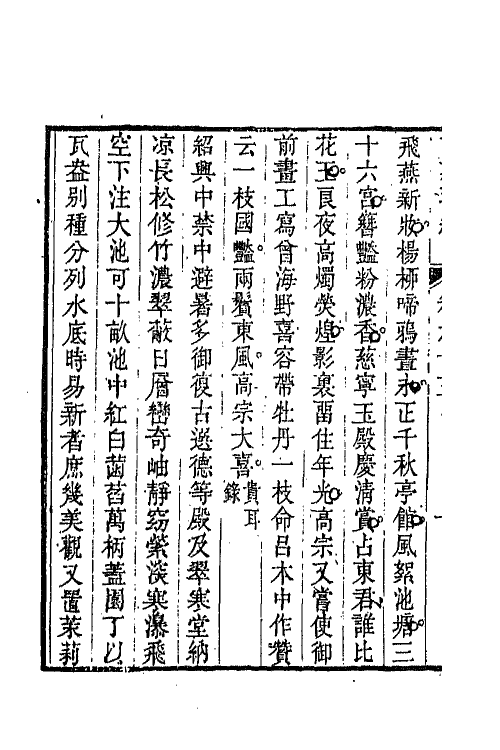 飛燕新妝楊柳啼鴉晝永正千秋亭館風絮池塘三
十六宮簪豔粉濃香慈寧玉殿慶清賞占東君誰比
花王良夜高燭熒煌影裏畱住年光高宗又嘗使御
前畫工寫曾海野喜容帶牡丹一枝命呂本中作贊
云一枝國豔兩鬢東風高宗大喜貴耳錄
紹興中禁中避暑多御復古選德等殿及翠寒堂納
凉長松修竹濃翠蔽日層巒奇岫靜窈縈淡寒瀑飛
空下注大池可十畝池中紅白菡萏萬柄蓋園丁以
瓦盎別種分列水底時易新者庶幾美觀又置茉莉